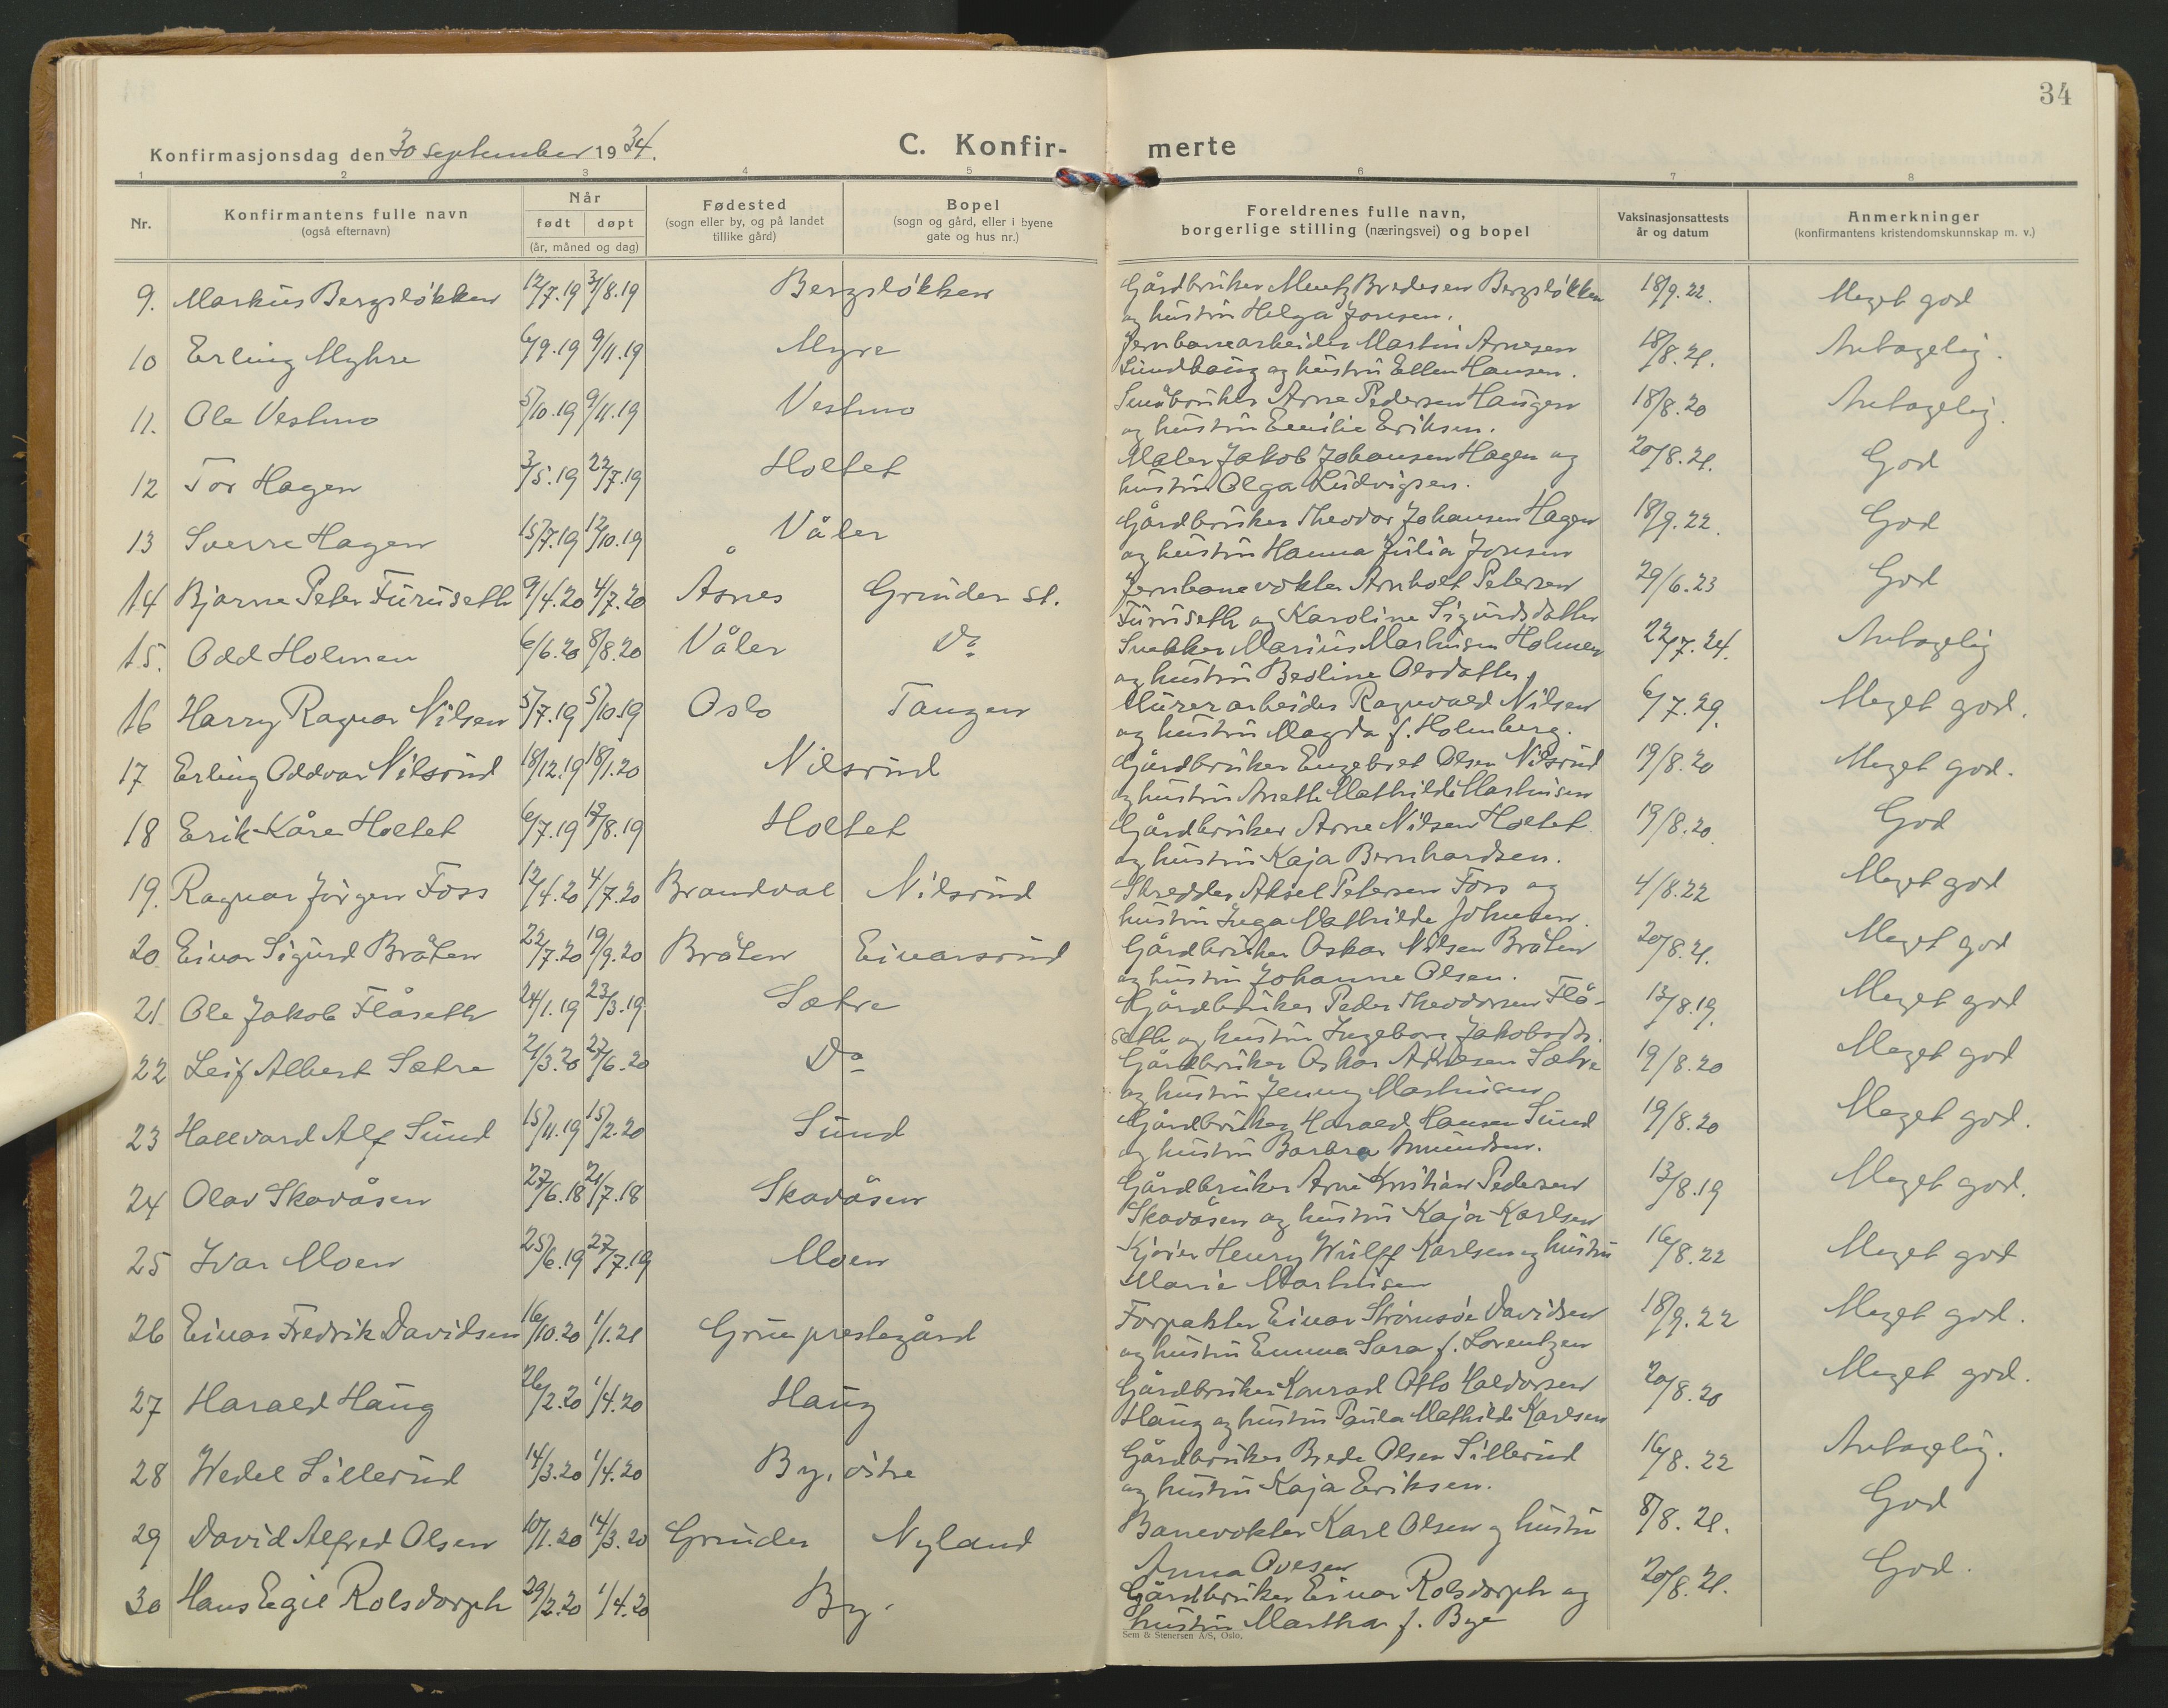 34
Konfirmasjonsdag den 30 september 1934.
C. Konfir- merte
1 2 3 4 5 6 7 8
Nr. Konfirmantens fulle navn (også efternavn) Når født døpt (år, måned og dag) Fødested (sogn eller by, og på landet tillike gård) Bopel (sogn og gård, eller i byene gate og hus nr.) Foreldrenes fulle navn, borgerlige stilling (næringsvei) og bopel Vaksinasjonsattests år og datum Anmerkninger (konfirmantens kristendomskunnskap m. v.)
9. Markus Bergsløkken 12/7.19 3/8.19 Bergsløkken Gårdbruker Mentz Bredesen Bergsløkken 18/9.22. Meget god
og hustru Helga Jonsen.
10 Erling Myhre 6/9.19 9/11.19 Myre Jernbanearbeider Martin Arnesen 18/8.21. Antagelig.
Sundhaug og hustru Ellen Hansen.
11. Ole Vestmo 5/10.19 9/11.19 Vestmo Småbruker Arne Pedersen Haugen 18/8.20 Antagelig.
og hustru Emilie Eriksen.
12 Tor Hagen 3/5.19 22/7.19 Holtet Maler Jakob Johansen Hagen og 20/8.21. God
hustru Olga Ludvigsen.
13 Sverre Hagen 15/7.19 12/10.19 Våler Gårdbruker Theodor Johansen Hagen 18/9.22. God
og hustru Hanna Julia Jonsen
14 Bjarne Peter Furuseth 9/4.20 4/7.20 Åsnes Grinder st. Jernbanevokter Arnholt Petersen 29/6.23 God
Furuseth og Karoline Sigurdsdatter
15. Odd Holmen 6/6.20 8/8.20 Våler Do Snekker Marius Martinsen Holmen 22/7.24. Antagelig
og hustru Bedline Olsdatter
16 Harry Ragnar Nilsen 5/7.19 5/10.19 Oslo Tangen Murerarbeider Ragnvald Nilsen 6/7.29. Meget god.
og hustru Magda f. Holmberg.
17 Erling Oddvar Nilsrud 18/12.19 18/1.20 Nilsrud Gårdbruker Engebret Olsen Nilsrud 19/8.20 Meget god.
og hustru Anette Mathilde Martinsen
18 Erik Kåre Holtet 6/7.19 17/8.19 Holtet Gårdbruker Arne Nilsen Holtet 19/8.20. God
og hustru Kaja Bernhardsen.
19. Ragnar Jørgen Foss 12/4.20 4/7.20 Brandval Nilsrud Skredder Aksel Petersen Foss og 4/8.22 Meget god
hustru Inga Mathilde Johnsen.
20 Einar Sigurd Bråten 22/7.20 19/9.20 Bråten Einarsrud Gårdbruker Oskar Nilsen Bråten 20/8.21. Meget god
og hustru Johanne Olsen.
21 Ole Jakob Flåseth 24/1.19 23/3.19 Sætre Gårdbruker Peder Theodorsen Flå- 13/8.19. Meget god
seth og hustru Ingeborg Jakobsdtr.
22 Leif Albert Sætre 21/3.20 27/6.20 Do Gårdbruker Oskar Andresen Sætre 19/8.20 Meget god
og hustru Jenny Martinsen
23 Hallvard Alf Sund 15/11.19 15/2.20 Sund Gårdbruker Harald Hansen Sund 19/8.20 Meget god.
og hustru Barbra Amundsen.
24 Olav Skavåsen 27/6.18 21/7.18 Skavåsen Gårdbruker Arne Kristian Pedersen 13/8.19 Meget god.
Skavåsen og hustru Kaja Karlsen
25 Ivar Moen 25/6.19 27/7.19 Moen Kjører Henry Wulff Karlsen og hustru 16/8.22 Meget god
Marie Martinsen
26 Einar Fredrik Davidsen 16/10.20 1/1.21 Grue prestegård Forpakter Einar Strømsøe Davidsen 18/9.22 Meget god.
og hustru Emma Sara f. Lorentzen
27 Harald Haug 26/2.20 1/4.20 Haug Gårdbruker Konrad Otto Haldorsen 20/8.20 Meget god.
Haug og hustru Paula Mathilde Karlsen
28 Wedel Sillerud 14/3.20 1/4.20 By, østre Gårdbruker Brede Olsen Sillerud 16/8.22 Antagelig.
og hustru Kaja Eriksen.
29 David Alfred Olsen 10/1.20 14/3.20 Grinder Nyland Banevokter Karl Olsen og hustru 8/8.21. God
Anna Ovesen
30 Hans Egil Rolsdorph 29/2.20 1/4.20 By. Gårdbruker Einar Rolsdorph og 20/8.21. God.
hustru Martha f. Bye
Sem & Stenersen A/S, Oslo.